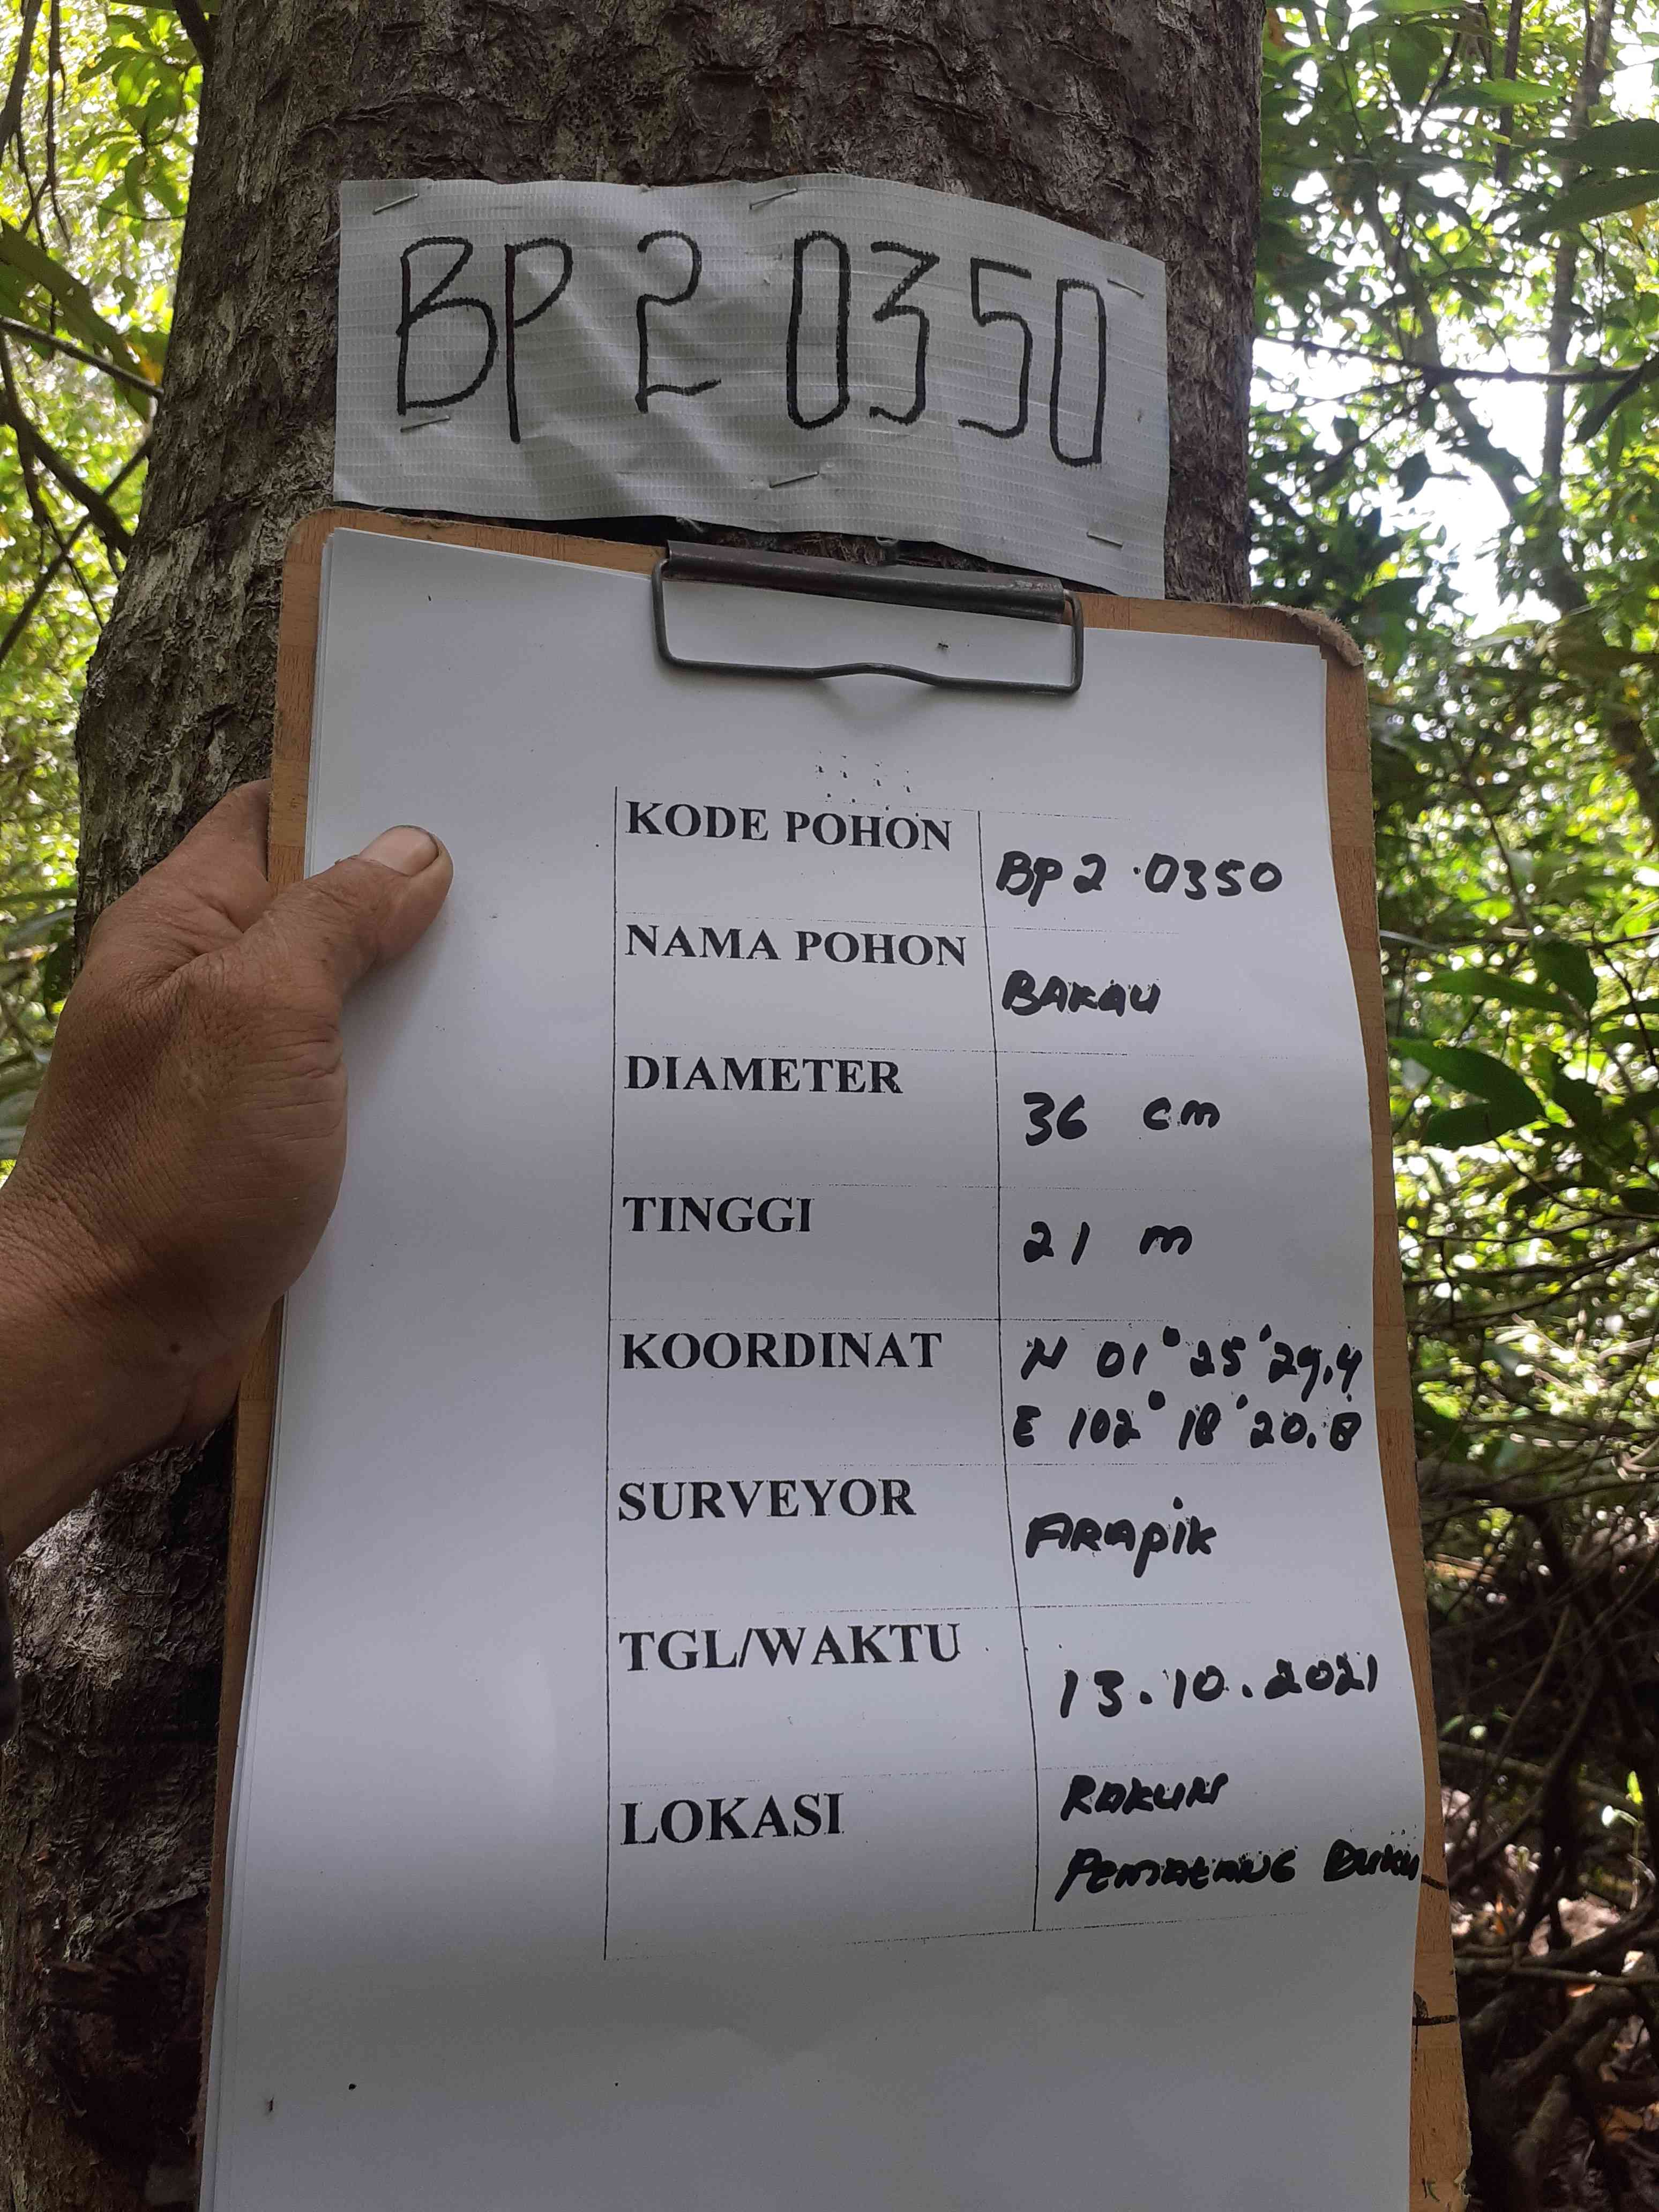 BP 2 0350
KODE POHON
BP 2 .0350
NAMA POHON
BAKAU
DIAMETER
36 cm
TINGGI
21 m
KOORDINAT
N 01° 25' 29,4
E 102° 18' 20.8
SURVEYOR
ARAPIK
TGL/WAKTU
13.10.2021
LOKASI
DUKU